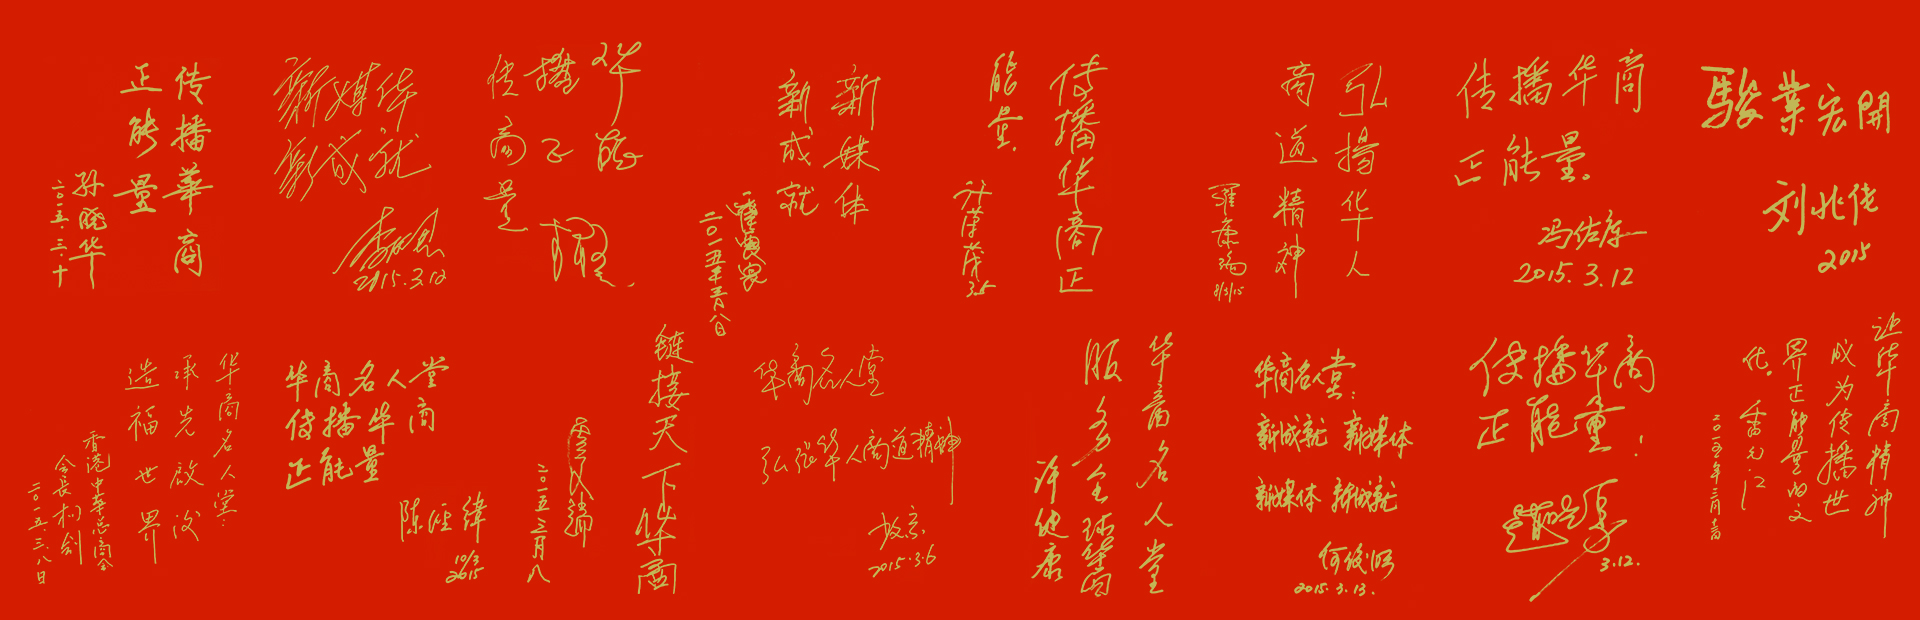 传播華商
正能量
孙晓华
二〇一五.三.十
新媒体
新成就
2015.3.12
传播华
商正能
量
新媒体
新成就
二〇一五年三月八日
传播华商正
能量.
许漢茂
3.5
弘揚华人
商道精神
羅康瑞
8/3/15
传播华商
正能量。
冯佐库
2015.3.12
駿業宏開
刘兆佳
2015
华商名人堂:
承先啟後
造福世界
香港中華总商会
会長
二〇一五.三.八日
华商名人堂
传播华商
正能量
陈经緯
10/3
2015
链接天下华商
二〇一五三月八
华商名人堂
弘扬华人商道精神
2015.3.6
华商名人堂
服务全球华商
许健康
华商名人堂:
新成就 新媒体
新媒体 新成就
何俊明
2015.3.13.
传播华商
正能量!
3.12.
让华商精神
成为传播世
界正能量的文
化。